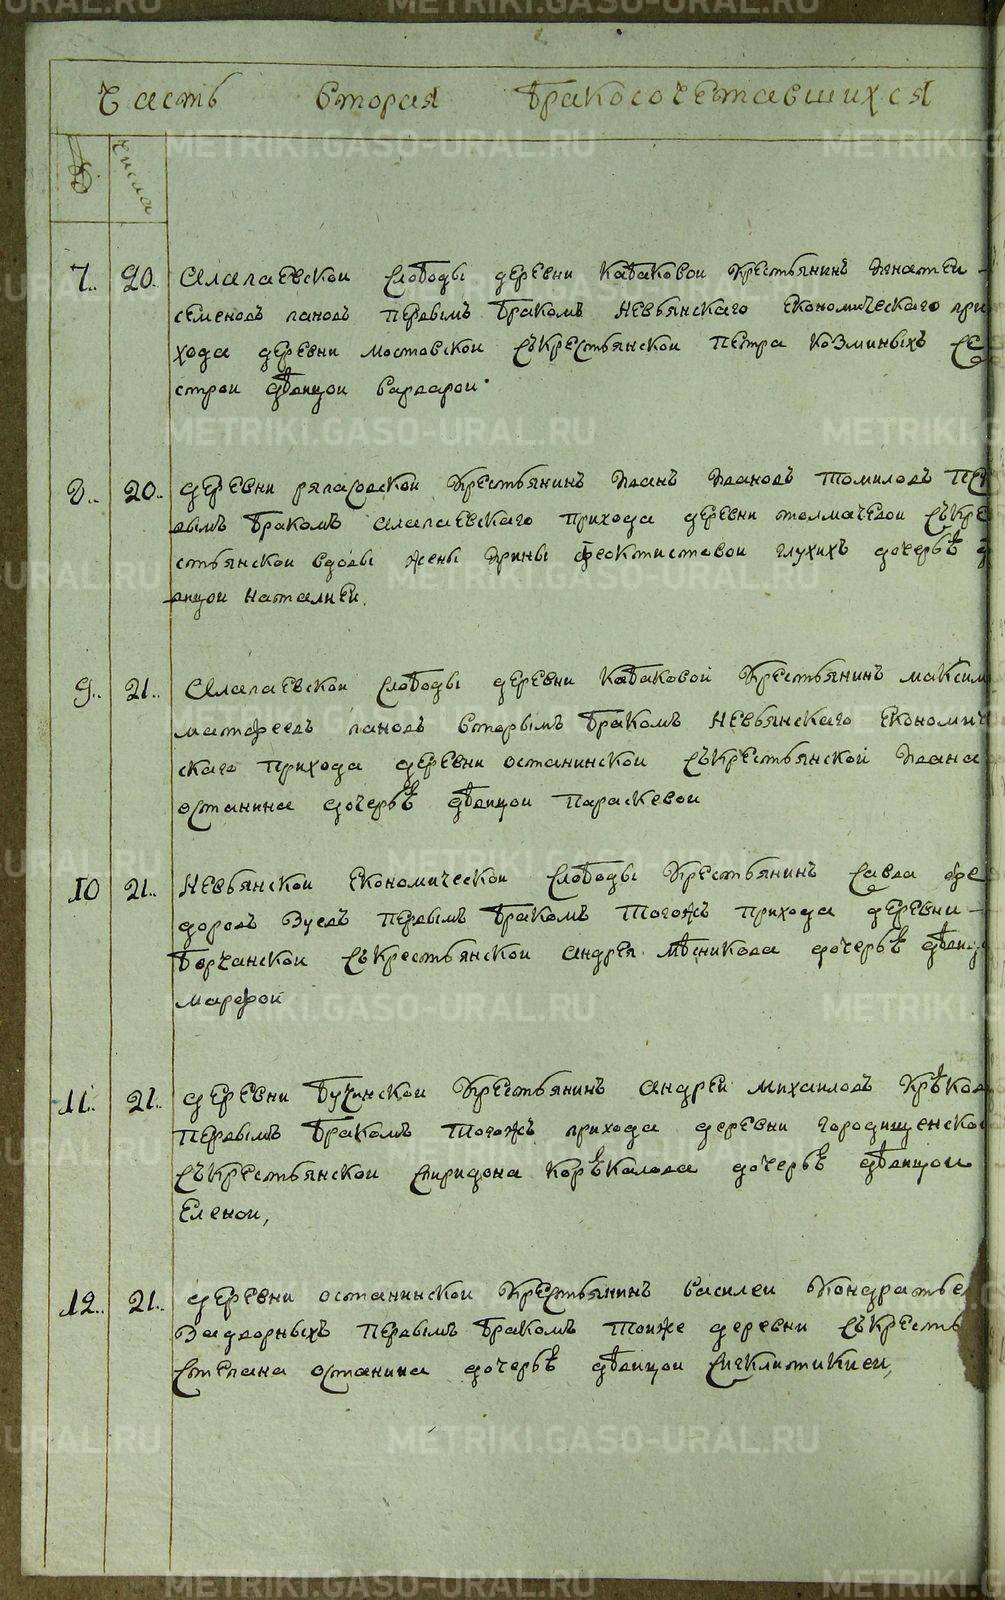 Часть вторая бракосочетавшихся
№ числа
7. 20. Алапаевской слободы деревни Кабаковой крестьянин Игнатей
семеновъ пановъ первымъ бракомъ Невьянскаго економическаго при
хода деревни мостовской съкрестьянской петра козминыхъ се
строй девицой варварой
8.. 20.. деревни крестьянинъ иванъ ивановъ томиловъ пер
вымъ бракомъ алапаевскаго прихода деревни толмачевой съкре
стьянской вдовы жены ирины феоктистовой глухихъ дочерью д
вицой наталией.
9.. 21.. Алапаевской слободы деревни кабаковой крестьянинъ максим
матфеевъ пановъ вторымъ бракомъ невьянскаго економич
скаго прихода деревни останинской съкрестьянской ивана
останина дочерью девицой параскевой
10 21.. Невьянской економической слободы крестьянинъ савва фе
доровъ зуевъ первымъ бракомъ тогожъ прихода деревни
борчанской съкрестьянской андрея мясникова дочерью девицо
марфой
11. 21. деревни бучинской крестьянинъ андрей михаиловъ
первымъ бракомъ тогожъ прихода деревни городищенской
съкрестьянской спиридона дочерью девицой
Еленой,
12.. 21. деревни останинской крестьянинъ василей кондратье
задворныхъ первымъ бракомъ тойже деревни съкресть
степана останина дочерью девицой синклитикией,
METRIKI.GASO-URAL.RU